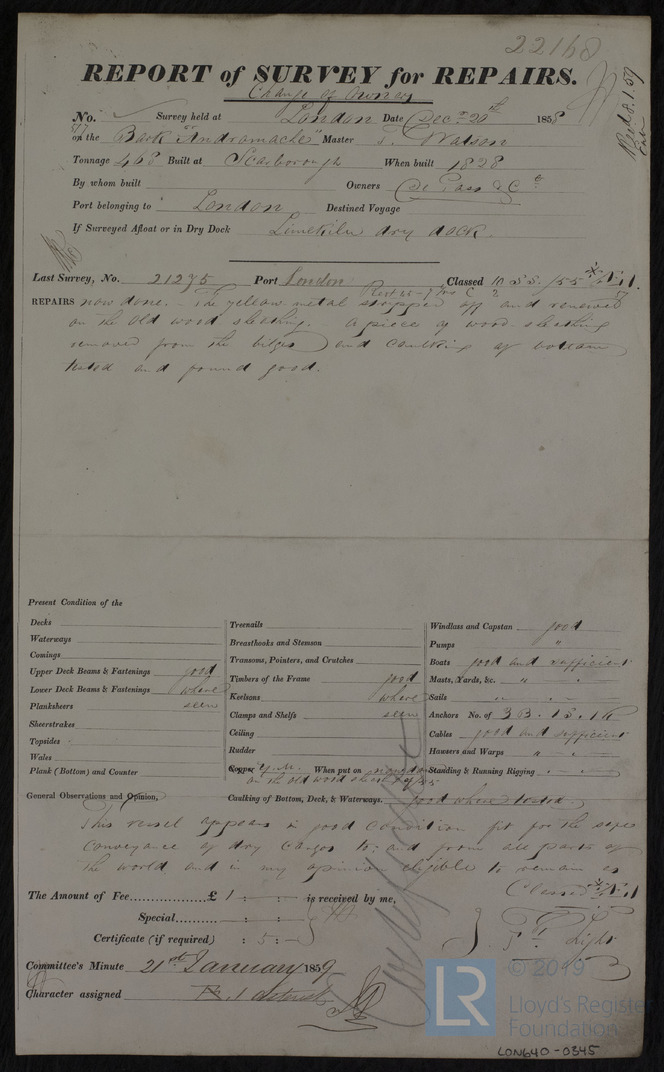 22168
REPORT of SURVEY for REPAIRS.
Change of Owners
No. Survey held at London Date Decr 20th 1858
on the Bark "Andromache" Master T. Watson
Tonnage 468 Built at Scarborough When built 1828
By whom built Owners De Pass & Co
Port belonging to London Destined Voyage
If Surveyed Afloat or in Dry Dock Limekiln dry dock.
Last Survey, No. 21275 Port London Classed
REPAIRS now done. The yellow metal stripped off and renewed
on the old wood sheathing. A piece of wood sheathing
removed from the bilges and caulking of bottom
tested and found good.
Present Condition of the
Decks
Waterways
Comings
Upper Deck Beams & Fastenings good
Lower Deck Beams & Fastenings where
Planksheers seen
Sheerstrakes
Topsides
Wales
Plank (Bottom) and Counter
Treenails
Breasthooks and Stemson
Transoms, Pointers, and Crutches
Timbers of the Frame good
Keelsons where
Clamps and Shelfs seen
Ceiling
Rudder
Copper Y.M. When put on now done
on the old wood sheath
Caulking of Bottom, Deck, & Waterways. good where tested
Windlass and Capstan good
Pumps "
Boats good and sufficient
Masts, Yards, &c. " "
Sails " "
Anchors No. of 3B. 1S. 1K
Cables good and sufficient
Hawsers and Warps " "
Standing & Running Rigging
General Observations and Opinion,
This vessel appears in good condition fit for the safe
conveyance of dry cargos to; and from all parts of
the world and in my opinion eligible to remain as
Classed
The Amount of Fee £ 1 : - : - is received by me,
Special - : - : -
Certificate (if required) : 5 : -
Committee's Minute 21st January 1859
Character assigned
© 2019
LR
Lloyd's Register
Foundation
LON640-0345